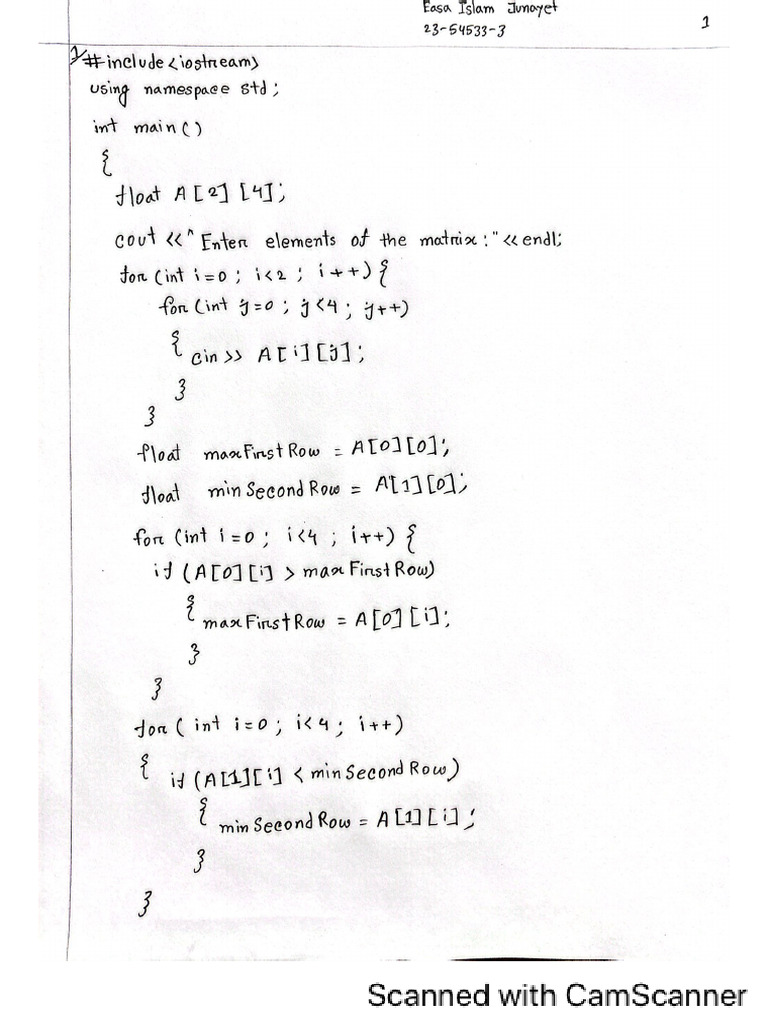 Easa Islam Junayet
23-54533-3
1
1/ #include <iostream>
using namespace std;
int main()
{
float A[2] [4];
cout << "Enter elements of the matrix:" << endl;
for (int i=0 ; i<2 ; i++) {
for (int j=0 ; j<4 ; j++)
{
cin >> A[i][j];
}
}
float maxFirstRow = A[0][0];
float minSecondRow = A[1][0];
for (int i=0 ; i<4 ; i++) {
if (A[0][i] > maxFirstRow)
{
maxFirstRow = A[0][i];
}
}
for ( int i=0 ; i<4 ; i++)
{
if (A[1][i] < minSecondRow)
{
minSecondRow = A[1][i];
}
}
Scanned with CamScanner